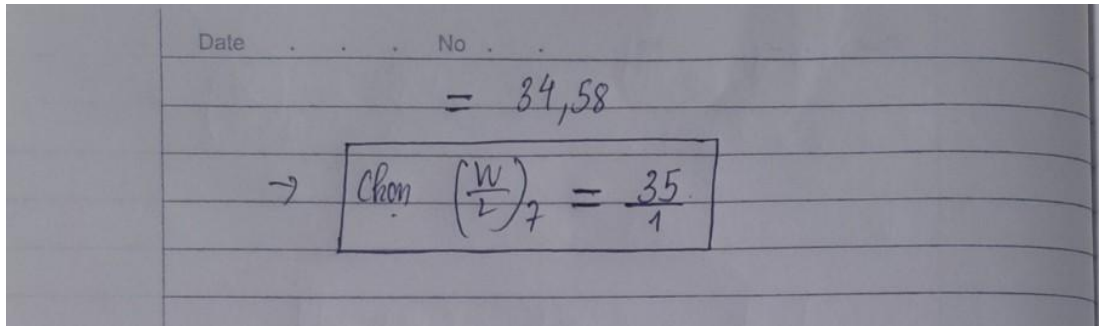 Date . . . . No . . .
= 34,58
→ Chọn (W/L)₇ = 35/1